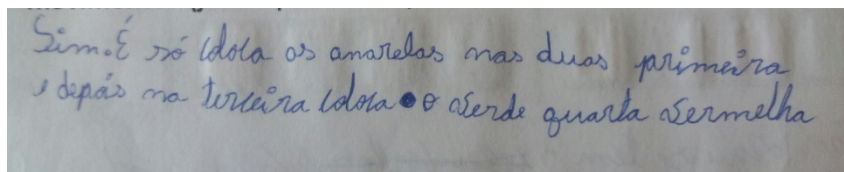 Sim. É só coloca os amarelas nas duas primeira
e depós na terceira coloca o verde quarta vermelha